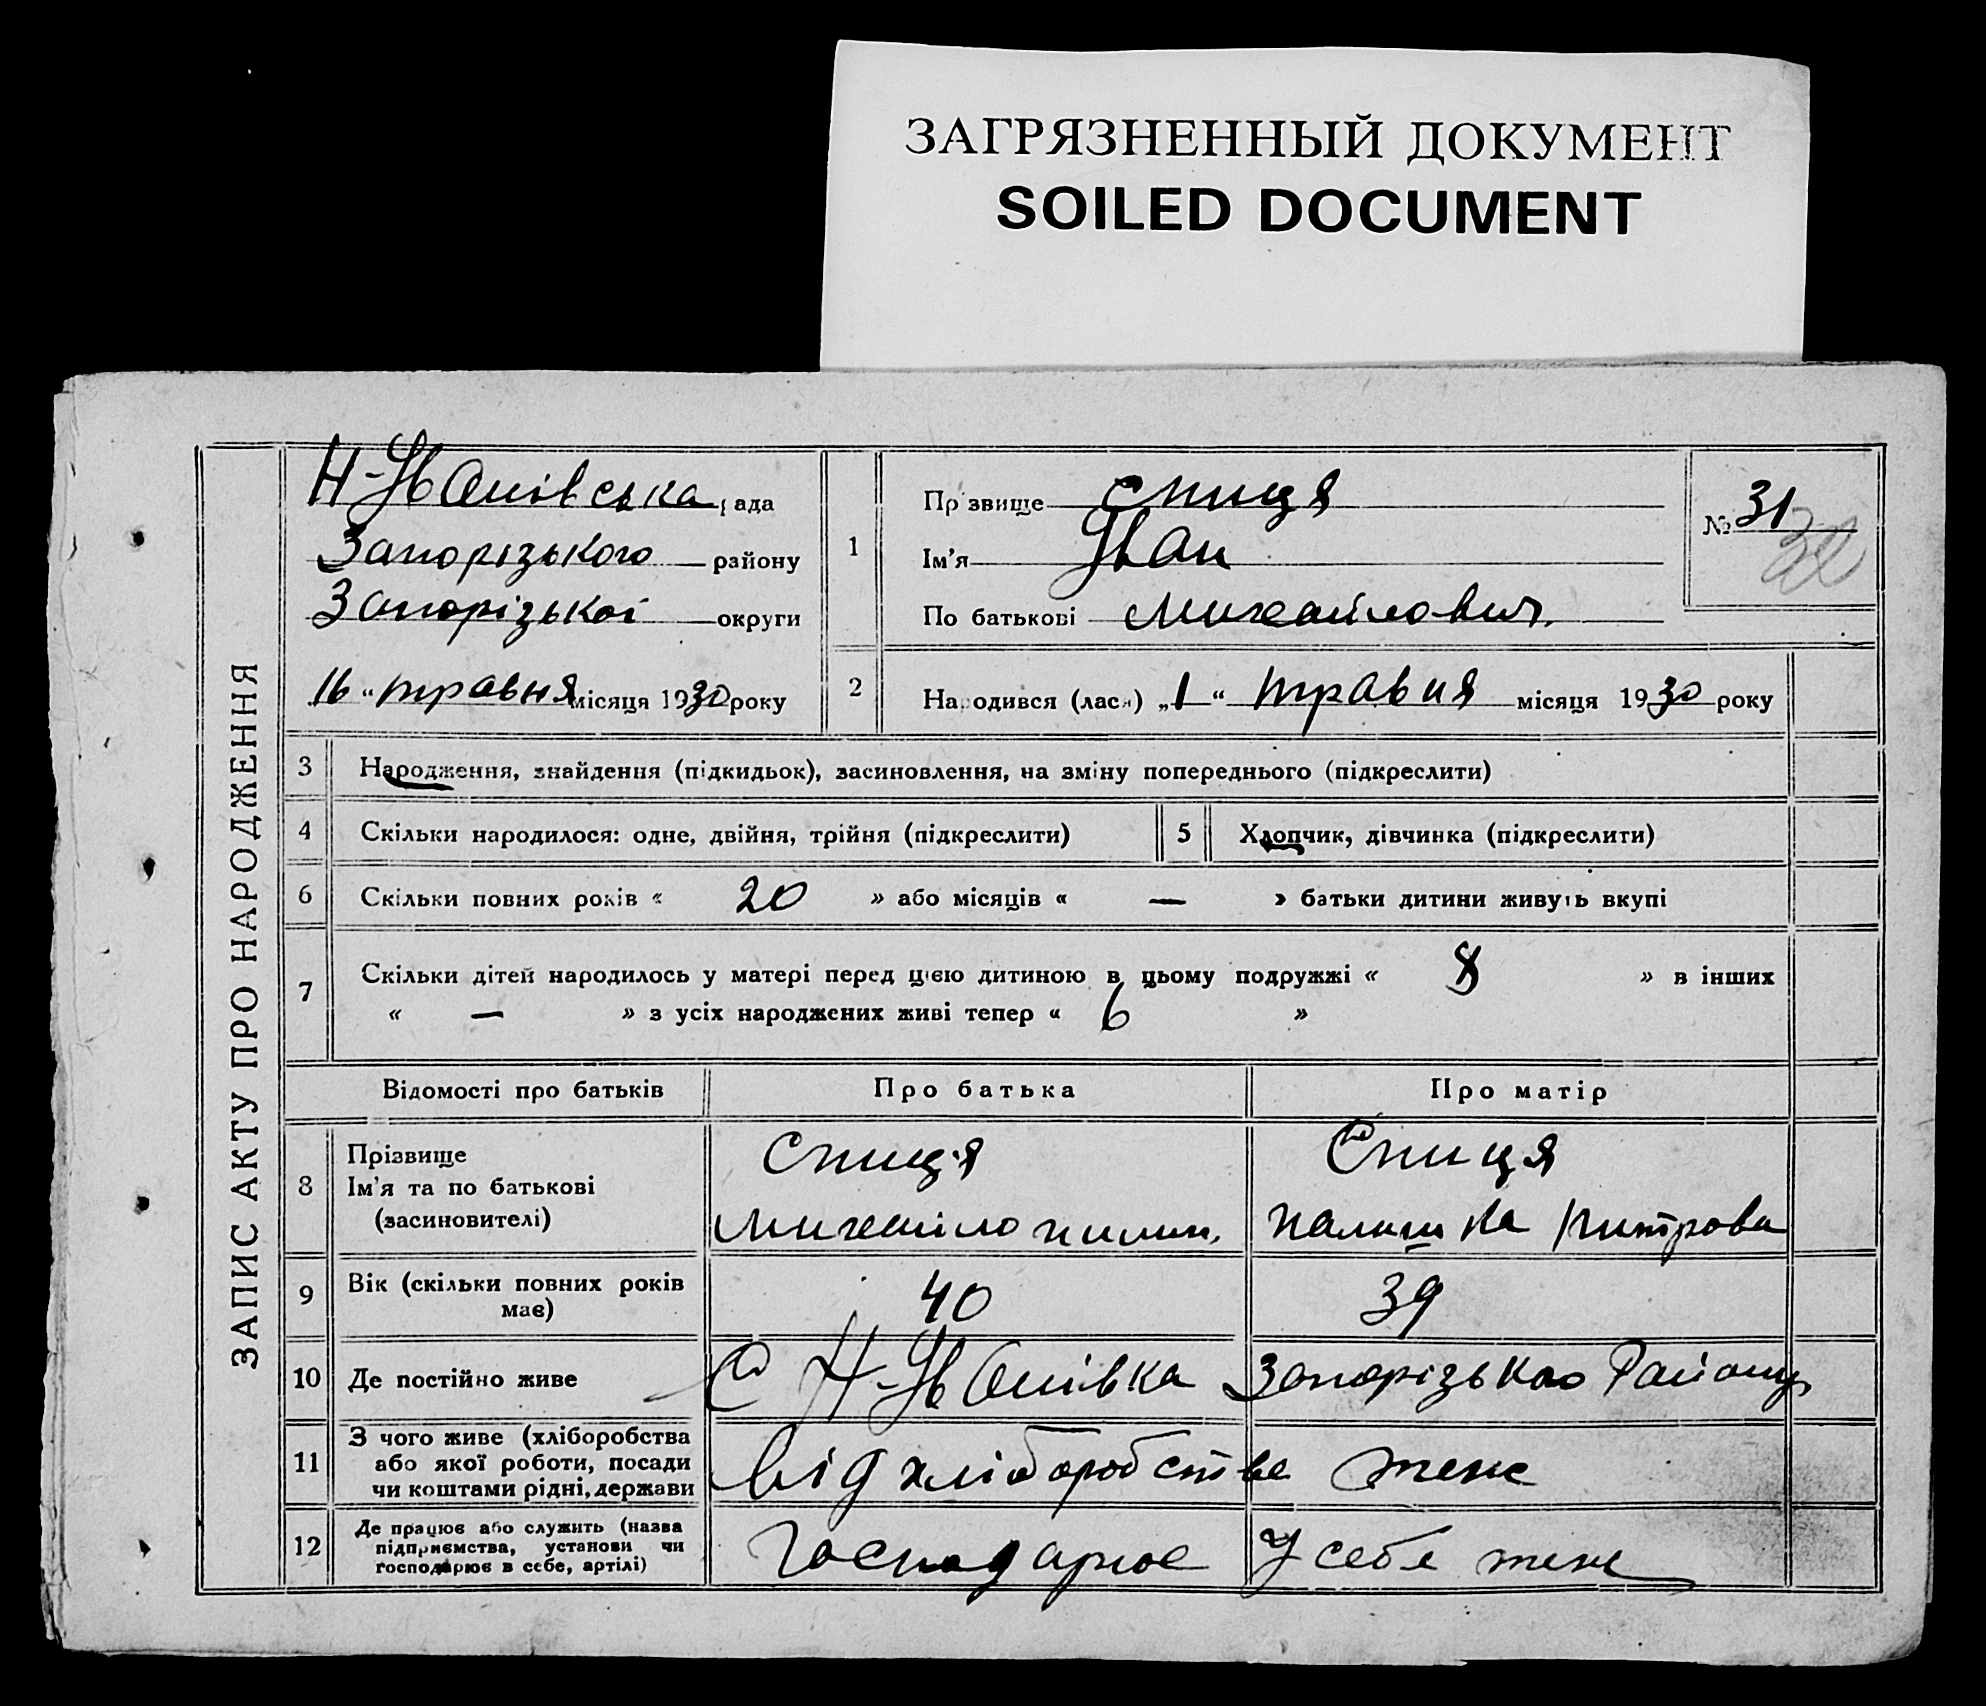 ЗАГРЯЗНЕННЫЙ ДОКУМЕНТ
SOILED DOCUMENT
ЗАПИС АКТУ ПРО НАРОДЖЕННЯ
Н-Іванівська рада
Запорізького району
Запорізької округи
16 " травня місяця 1930 року
1
Прізвище спиця
Ім'я Іван
По батькові Михайлович.
№ 31
2 Народився (лася) „1 " травня місяця 1930 року
3 Народження, знайдення (підкидьок), засиновлення, на зміну попереднього (підкреслити)
4 Скільки народилося: одне, двійня, трійня (підкреслити) 5 Хлопчик, дівчинка (підкреслити)
6 Скільки повних років « 20 » або місяців « — » батьки дитини живуть вкупі
7 Скільки дітей народилось у матері перед цією дитиною в цьому подружжі « 8 » в інших
« — » з усіх народжених живі тепер « 6 »
Відомості про батьків Про батька Про матір
8 Прізвище
Ім'я та по батькові
(засиновителі)
Спиця
Михайло
Спиця
9 Вік (скільки повних років
має)
40 39
10 Де постійно живе С Н-Іванівка Запорізькао Району
11 З чого живе (хліборобства
або якої роботи, посади
чи коштами рідні, держави
від хліборобства теж
12 Де працює або служить (назва
підприємства, установи чи
господарює в себе, артілі)
Господарює У себе теж